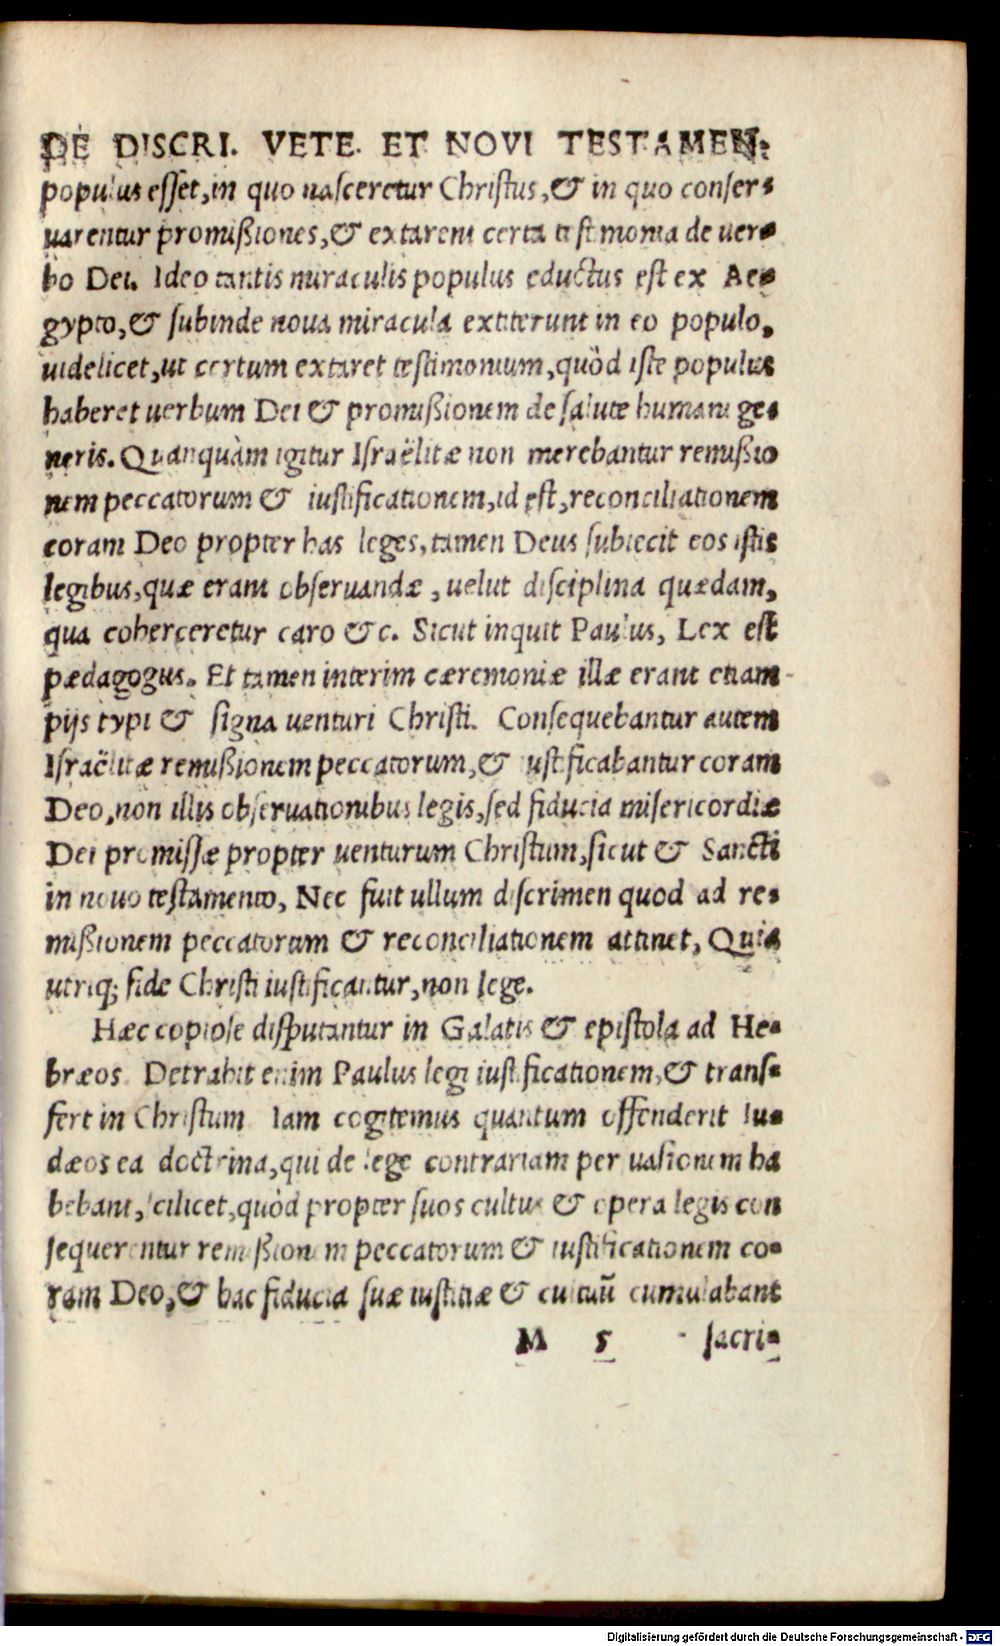 DE DISCRI. VETE. ET NOVI TESTAMEN.
populus esset, in quo nasceretur Christus, & in quo conser-
uarentur promißiones, & extarent certa testimonia de uer-
bo Dei. Ideo tantis miraculis populus eductus est ex Ae-
gypto, & subinde noua miracula extiterunt in eo populo,
uidelicet, ut certum extaret testimonium, quòd iste populus
haberet uerbum Dei & promißionem de salute humani ge-
neris. Quanquàm igitur Israëlitæ non merebantur remißio
nem peccatorum & iustificationem, id est, reconciliationem
coram Deo propter has leges, tamen Deus subiecit eos istis
legibus, quæ erant obseruandæ, uelut disciplina quædam,
qua coherceretur caro &c. Sicut inquit Paulus, Lex est
pædagogus. Et tamen interim cæremoniæ illæ erant etiam
pijs typi & signa uenturi Christi. Consequebantur autem
Israëlitæ remißionem peccatorum, & iustificabantur coram
Deo, non illis obseruationibus legis, sed fiducia misericordiæ
Dei promissæ propter uenturum Christum, sicut & Sancti
in nouo testamento, Nec fuit ullum discrimen quod ad re-
mißionem peccatorum & reconciliationem attinet, Quia
utriq; fide Christi iustificantur, non lege.
Hæc copiose disputantur in Galatis & epistola ad He-
bræos. Detrahit enim Paulus legi iustificationem, & trans-
fert in Christum Iam cogitemus quantum offenderit Iu-
dæos ea doctrina, qui de lege contrariam persuasionem ha
bebant, scilicet, quòd propter suos cultus & opera legis con
sequerentur remißionem peccatorum & iustificationem co-
ram Deo, & hac fiducia suæ iustitiæ & cultuū cumulabant
M 5 sacri-
Digitalisierung gefördert durch die Deutsche Forschungsgemeinschaft - DFG